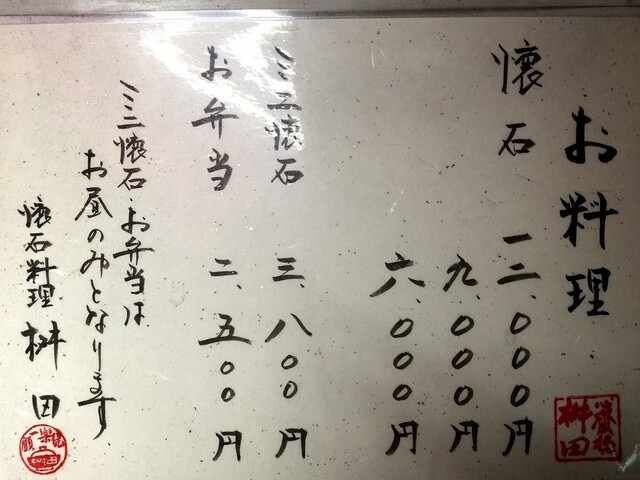 お料理
懐石 一二、〇〇〇円
九、〇〇〇円
六、〇〇〇円
ミニ懐石 三、八〇〇円
お弁当 二、五〇〇円
ミニ懐石・お弁当は
お昼のみとなります
懐石料理 桝田
桝田